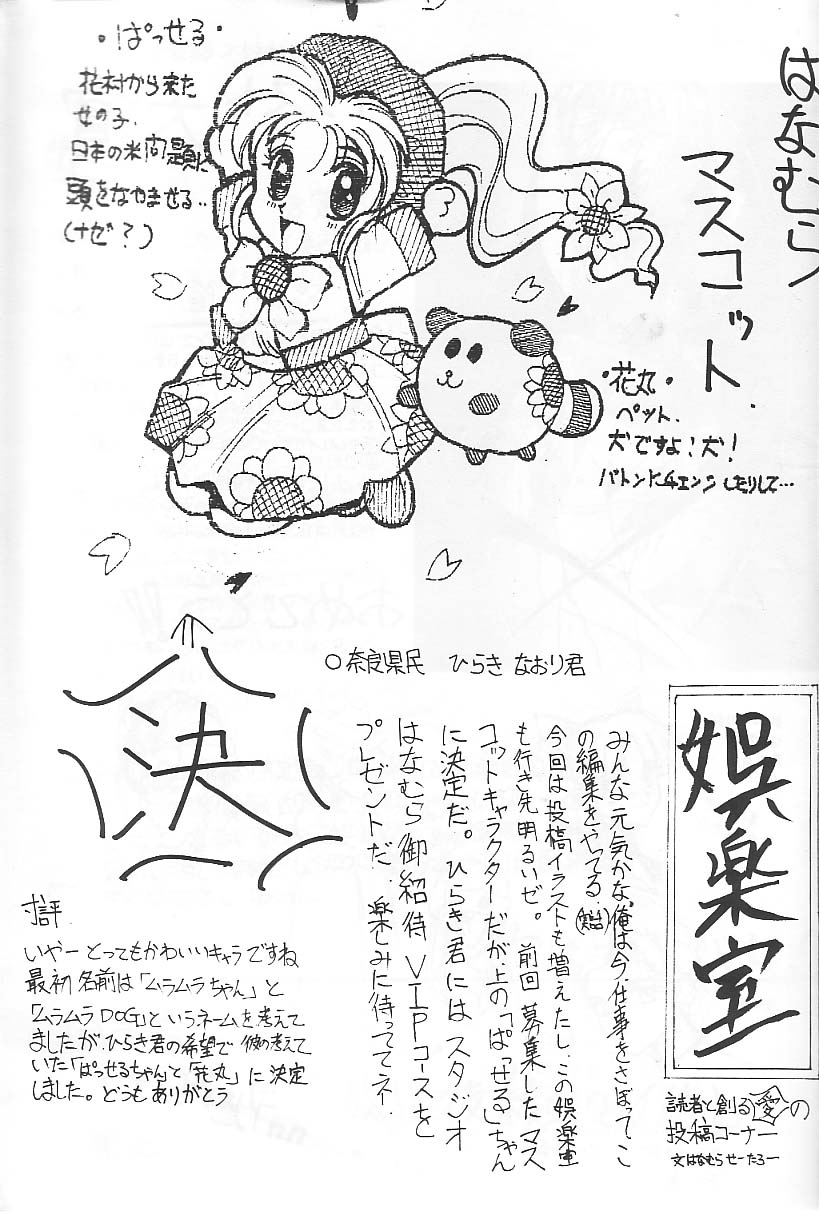 はなむら
マスコット
・ぱっせる・
花村から来た
女の子.
日本の米問題に
頭をなやませる..
(ナゼ?)
・花丸・
ペット.
犬ですよ!犬!
バトンにチェンジしたりして…
決
○奈良県民 ひらき なおり君
娯楽室
読者と創る愛の
投稿コーナー
文はなむらせーたろー
みんな元気かな。俺は今、仕事をさぼってこ
の編集をやってる。
今回は投稿イラストも増えたし、この娯楽室
も行き先明るいゼ。前回募集したマス
コットキャラクターだが、上の「ぱっせる」ちゃん
に決定だ。ひらき君にはスタジオ
はなむら御紹待VIPコースを
プレゼントだ。楽しみに待っててネ.
寸評
いやーとってもかわいいキャラですね
最初名前は「ムラムラちゃん」と
「ムラムラDOG」というネームを考えて
ましたが、ひらき君の希望で彼の考えて
いた「ぱっせるちゃん」と「花丸」に決定
しました。どうもありがとう